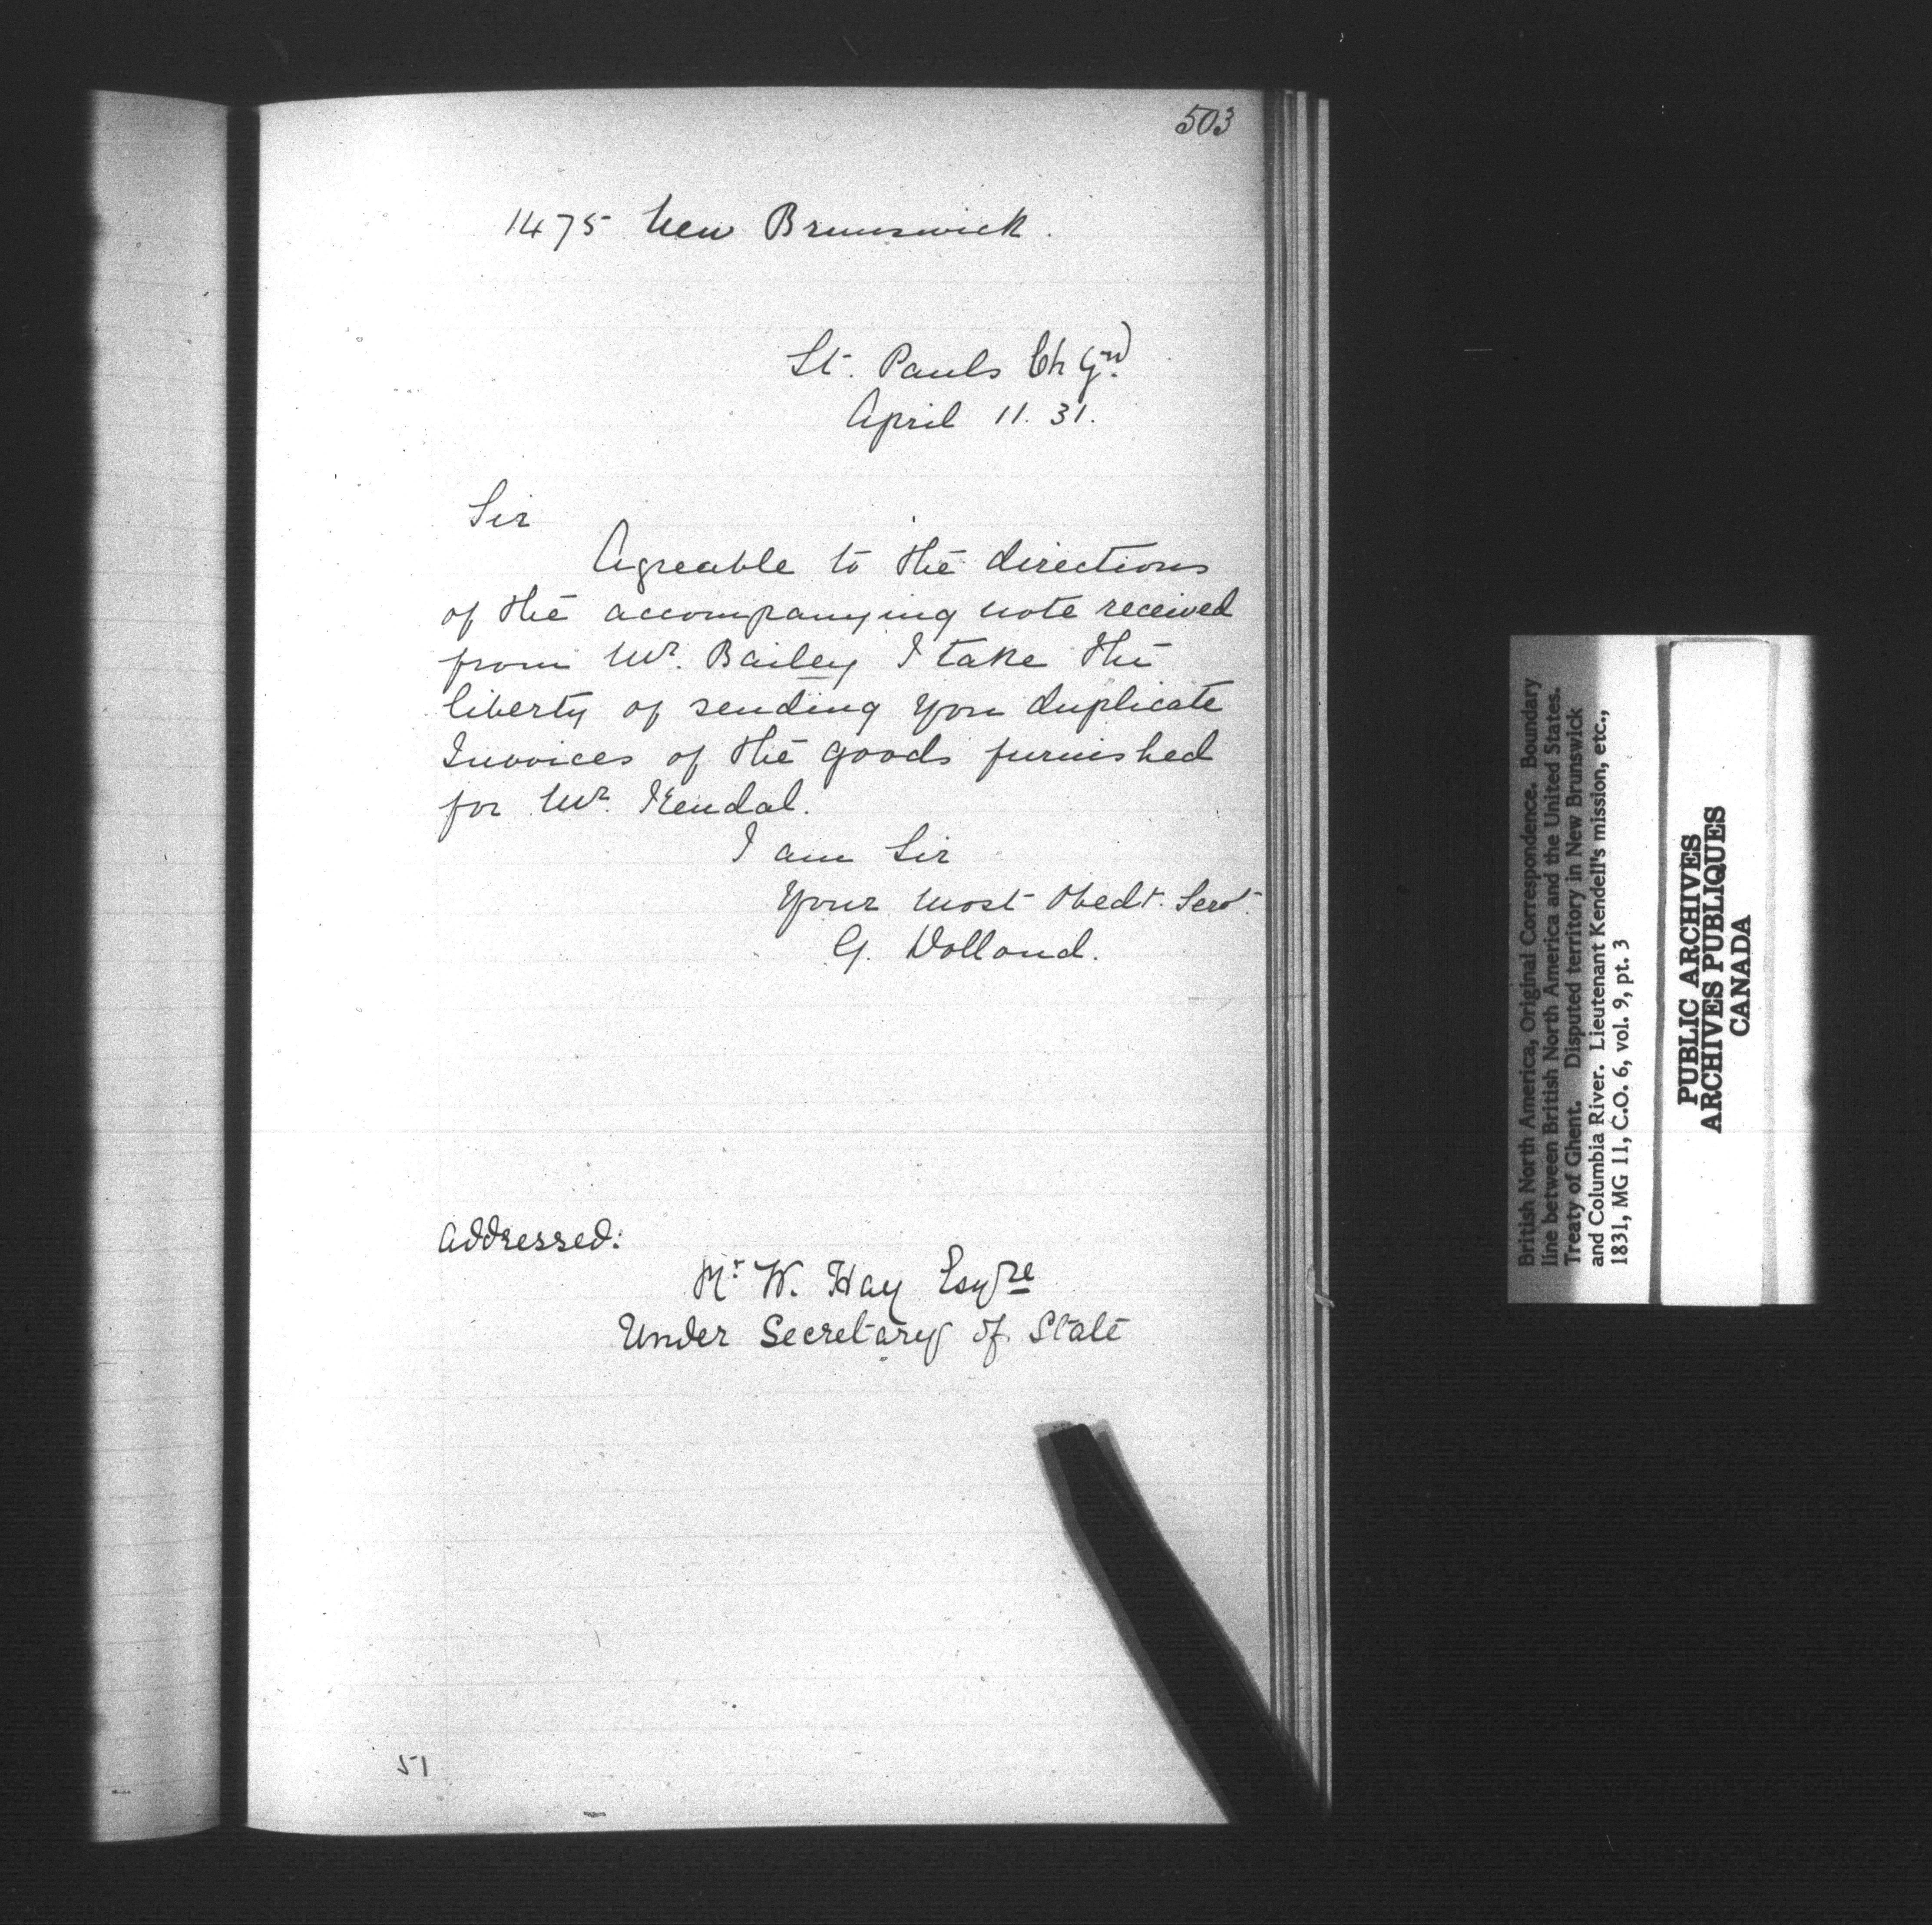 503
1475 New Brunswick.
St. Pauls Ch Yd.
April 11. 31.
Sir
Agreable to the directions
of the accompanying note received
from Mr. Bailey I take the
liberty of sending you duplicate
Invoices of the goods furnished
for Mr. Kendal.
I am Sir
Your most Obedt. Servt.
G. Dollond.
Addressed:
Mr W. Hay Esqre
Under Secretary of State
51
British North America, Original Correspondence. Boundary
line between British North America and the United States.
Treaty of Ghent. Disputed territory in New Brunswick
and Columbia River. Lieutenant Kendell's mission, etc.,
1831, MG 11, C.O. 6, vol. 9, pt. 3
PUBLIC ARCHIVES
ARCHIVES PUBLIQUES
CANADA